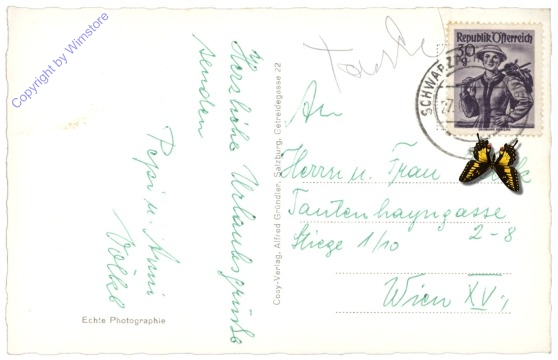 Copyright by Wimstore
Herzliche Urlaubsgrüße
senden
Pepi u. Anni
Völkl
Echte Photographie
Cosy-Verlag, Alfred Gründler, Salzburg, Getreidegasse 22
Republik Österreich
30 g
SCHWARZA
An
Herrn u. Frau
Tautenhayngasse
Stiege 1/10 2-8
Wien XV.,